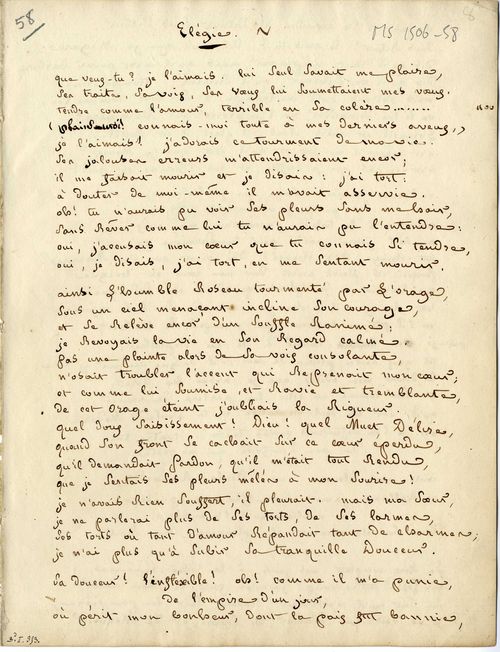 58
Elégie.
MS 1506-58
que veux-tu? je l'aimais. lui seul savait me plaire,
Ses traits, sa voix, ses vœux lui soumettaient mes vœux.
tendre comme l'amour, terrible en sa colère........
(plains-moi! connais-moi toute à mes derniers aveux,)
je l'aimais! j'adorais ce tourment de ma vie.
Ses jalouses erreurs m'attendrissaient encor;
il me faisait mourir et je disais: j'ai tort.
à douter de moi-même il m'avait asservie.
oh! tu n'aurais pu voir ses pleurs sans me haïr,
sans Rêver comme lui tu n'aurais pu l'entendre:
oui, j'accusais mon cœur que tu connais si tendre,
oui, je disais, j'ai tort, en me sentant mourir.
ainsi l'humble Roseau tourmenté par l'orage,
sous un ciel menaçant incline son courage,
et se Relève encor, d'un souffle Ranimé;
je Revoyais la vie en son Regard calmé.
pas une plainte alors de sa voix consolante,
n'osait troubler l'accent qui Reprenait mon cœur;
et comme lui soumise, et Ravie et tremblante,
de cet orage éteint j'oubliais la Rigueur.
quel doux saisissement! Dieu! quel Muet Délire,
quand son front se cachait sur ce cœur éperdu,
qu'il demandait pardon, qu'il m'était tout Rendu,
que je sentais ses pleurs mêlés à mon sourire!
je n'avais Rien souffert, il pleurait. mais ma Sœur,
je ne parlerai plus de ses torts, de ses larmes,
ses torts où tant d'amour Répandait tant de charmes;
je n'ai plus qu'à subir sa tranquille Douceur.
Sa douceur! l'inflexible! oh! comme il m'a punie,
de l'empire d'un jour,
où périt mon bonheur, dont la paix fut bannie,
B.T. 353.